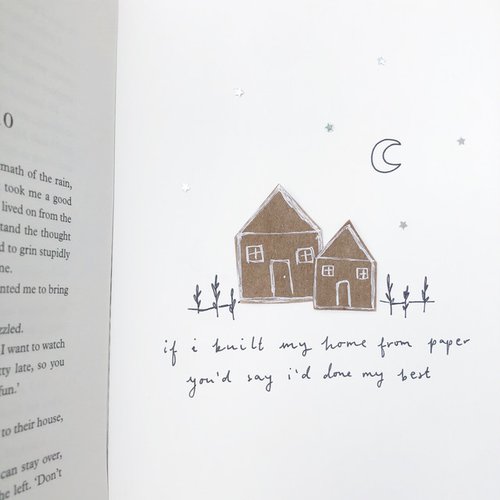 0
math of the rain,
took me a good
lived on from the
tand the thought
d to grin stupidly
ne.
nted me to bring
zled.
I want to watch
ty late, so you
fun.'
to their house,
can stay over,
he left. 'Don't
if i built my home from paper
you'd say i'd done my best